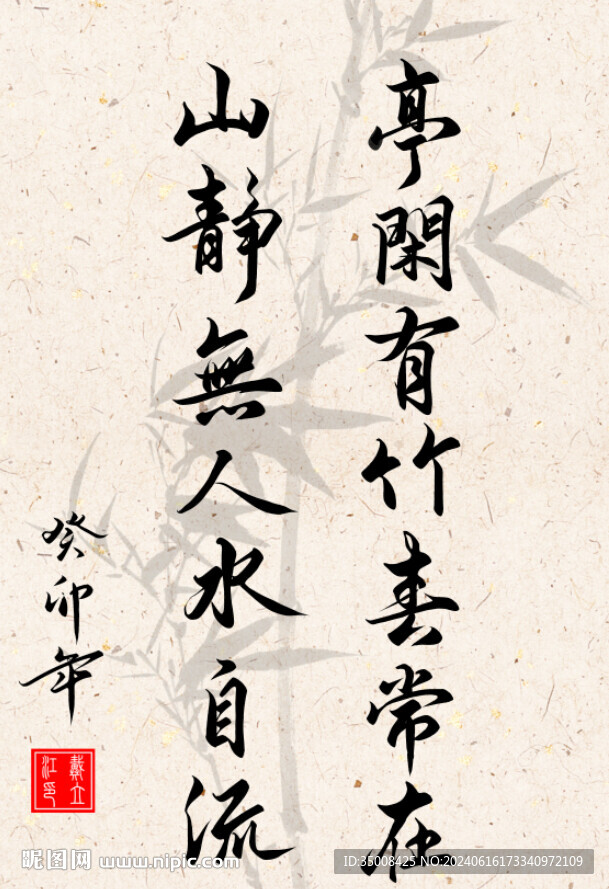 亭閑有竹春常在
山靜無人水自流
癸卯年
戴立
江印
昵图网 www.nipic.com
ID:35008425 NO:20240616173340972109